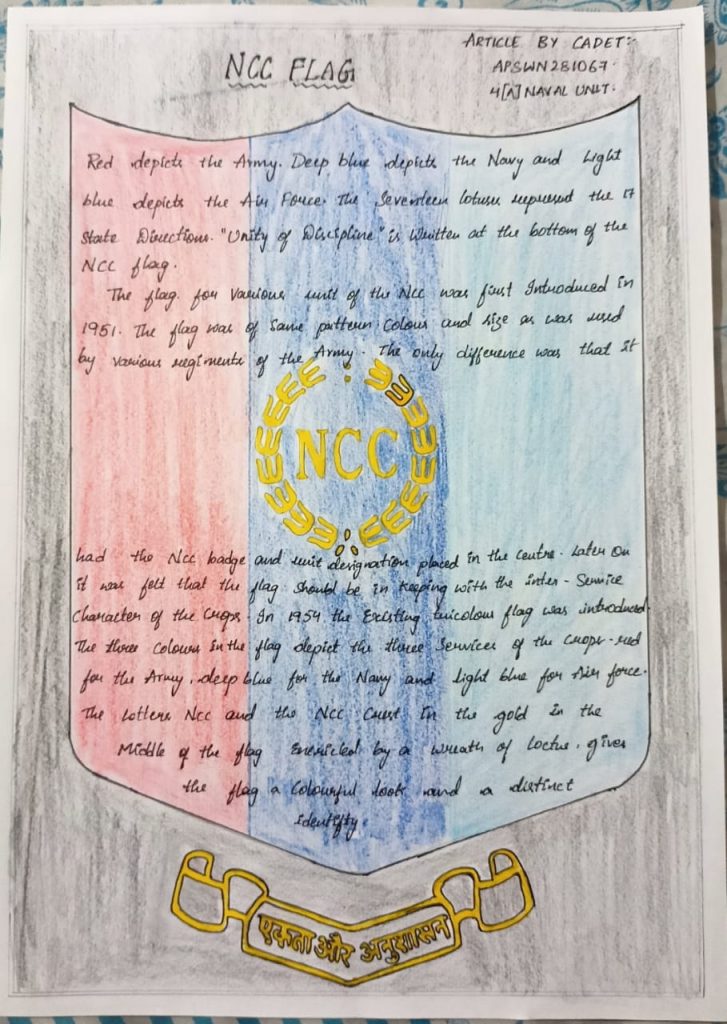 NCC FLAG
ARTICLE BY CADET:-
APSWN281067.
4[A] NAVAL UNIT.
Red depicts the Army. Deep blue depicts the Navy and Light
blue depicts the Air Force. The Seventeen lotuses represent the 17
State Directions. "Unity of Discipline" is written at the bottom of the
NCC flag.
The flag for various unit of the NCC was first Introduced in
1951. The flag was of same pattern, colour and size as was used
by various regiments of the Army. The only difference was that it
NCC
had the NCC badge and unit designation placed in the centre. Later on
it was felt that the flag should be in keeping with the inter-Service
Character of the Crops. In 1954 the Existing tricolour flag was introduced.
The three colours in the flag depict the three Services of the Crops-red
for the Army, deep blue for the Navy and light blue for Air force.
The Letters NCC and the NCC Crest in the gold in the
Middle of the flag Enericled by a wreath of Loctus, gives
the flag a Colourful look and a distinct
identifty.
एकता और अनुशासन